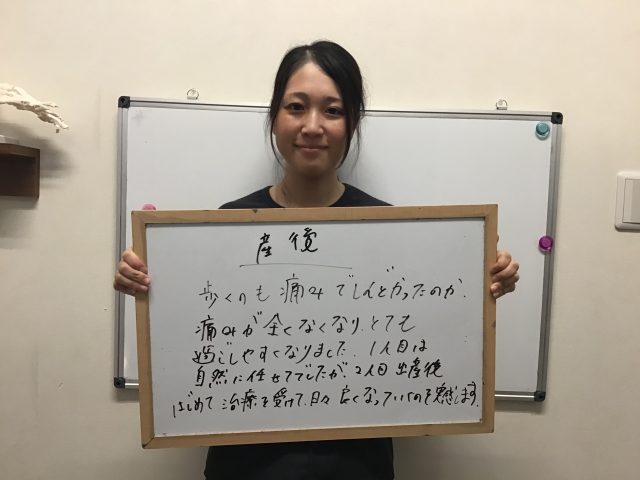 産後
歩くのも痛みでしんどかったのが、
痛みが全くなくなり、とても
過ごしやすくなりました。1人目は
自然に任せてでしたが、2人目出産後
はじめて治療を受けて、日々良くなっていくのを実感します。